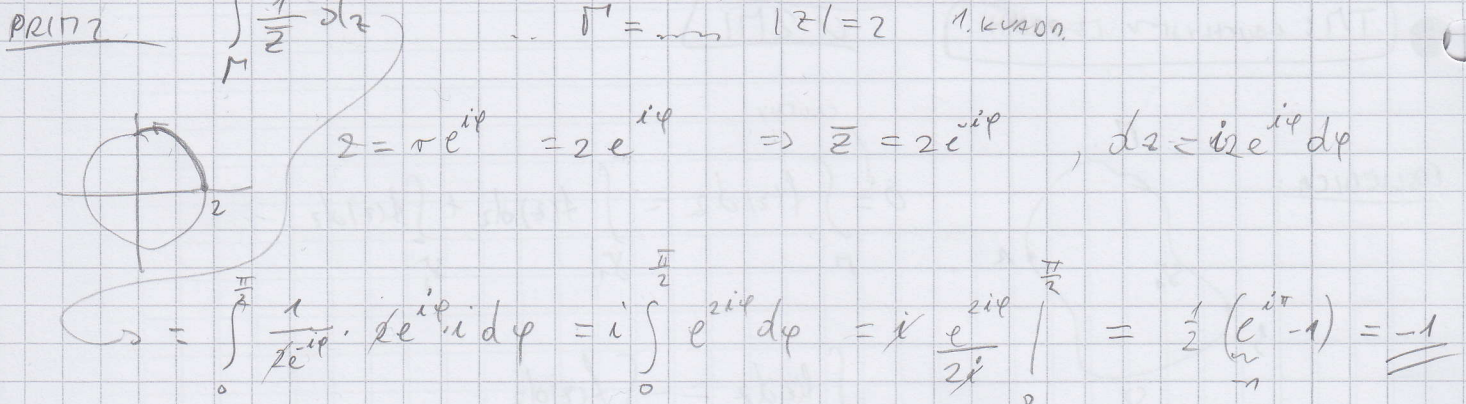 PRIM2 ∫_Γ 1/z̄ dz .. Γ = ... |z| = 2 1. KVADR.
z = re^{iφ} = 2e^{iφ} ⇒ z̄ = 2e^{-iφ} , dz = i2e^{iφ} dφ
2
= ∫_0^{π/2} 1/(2e^{-iφ}) · 2e^{iφ} · i dφ = i ∫_0^{π/2} e^{2iφ} dφ = i e^{2iφ}/(2i) |_0^{π/2} = 1/2 (e^{iπ} - 1) = -1
-1